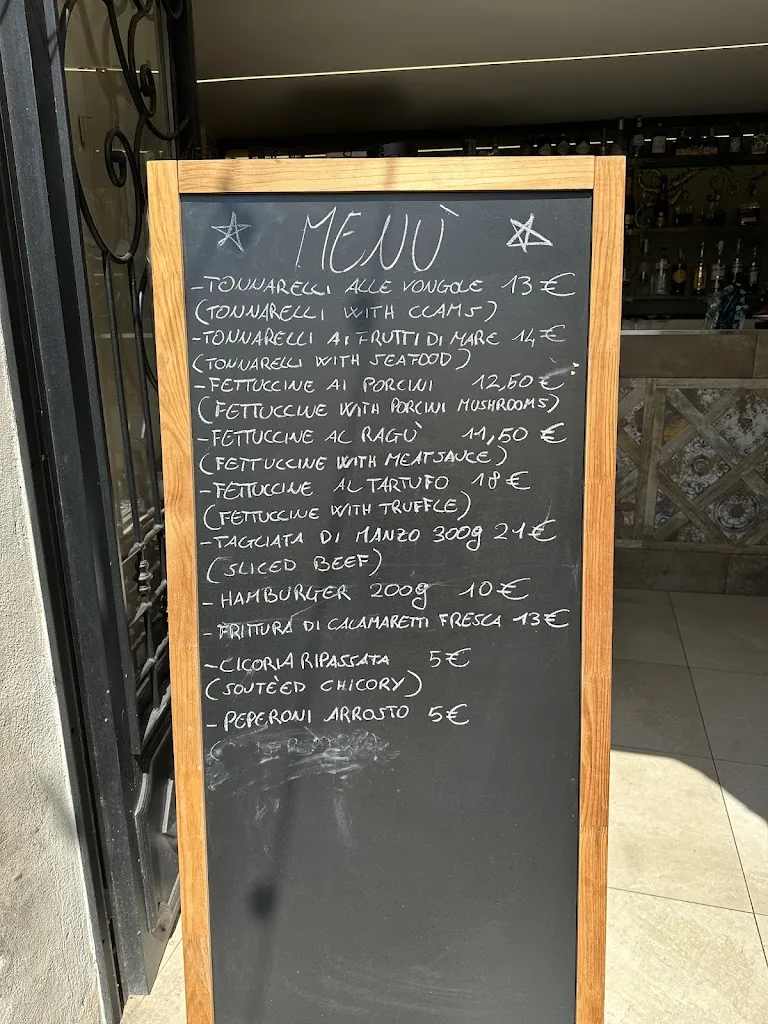 MENÙ
-TONNARELLI ALLE VONGOLE 13€
(TONNARELLI WITH CLAMS)
-TONNARELLI AI FRUTTI DI MARE 14€
(TONNARELLI WITH SEAFOOD)
-FETTUCCINE AI PORCINI 12,50€
(FETTUCCINE WITH PORCINI MUSHROOMS)
-FETTUCCINE AL RAGÙ 11,50 €
(FETTUCCINE WITH MEATSAUCE)
-FETTUCCINE AL TARTUFO 18€
(FETTUCCINE WITH TRUFFLE)
-TAGLIATA DI MANZO 300g 21€
(SLICED BEEF)
-HAMBURGER 200g 10€
-FRITTURA DI CALAMARETTI FRESCA 13€
-CICORIA RIPASSATA 5€
(SOUTÈED CHICORY)
-PEPERONI ARROSTO 5€